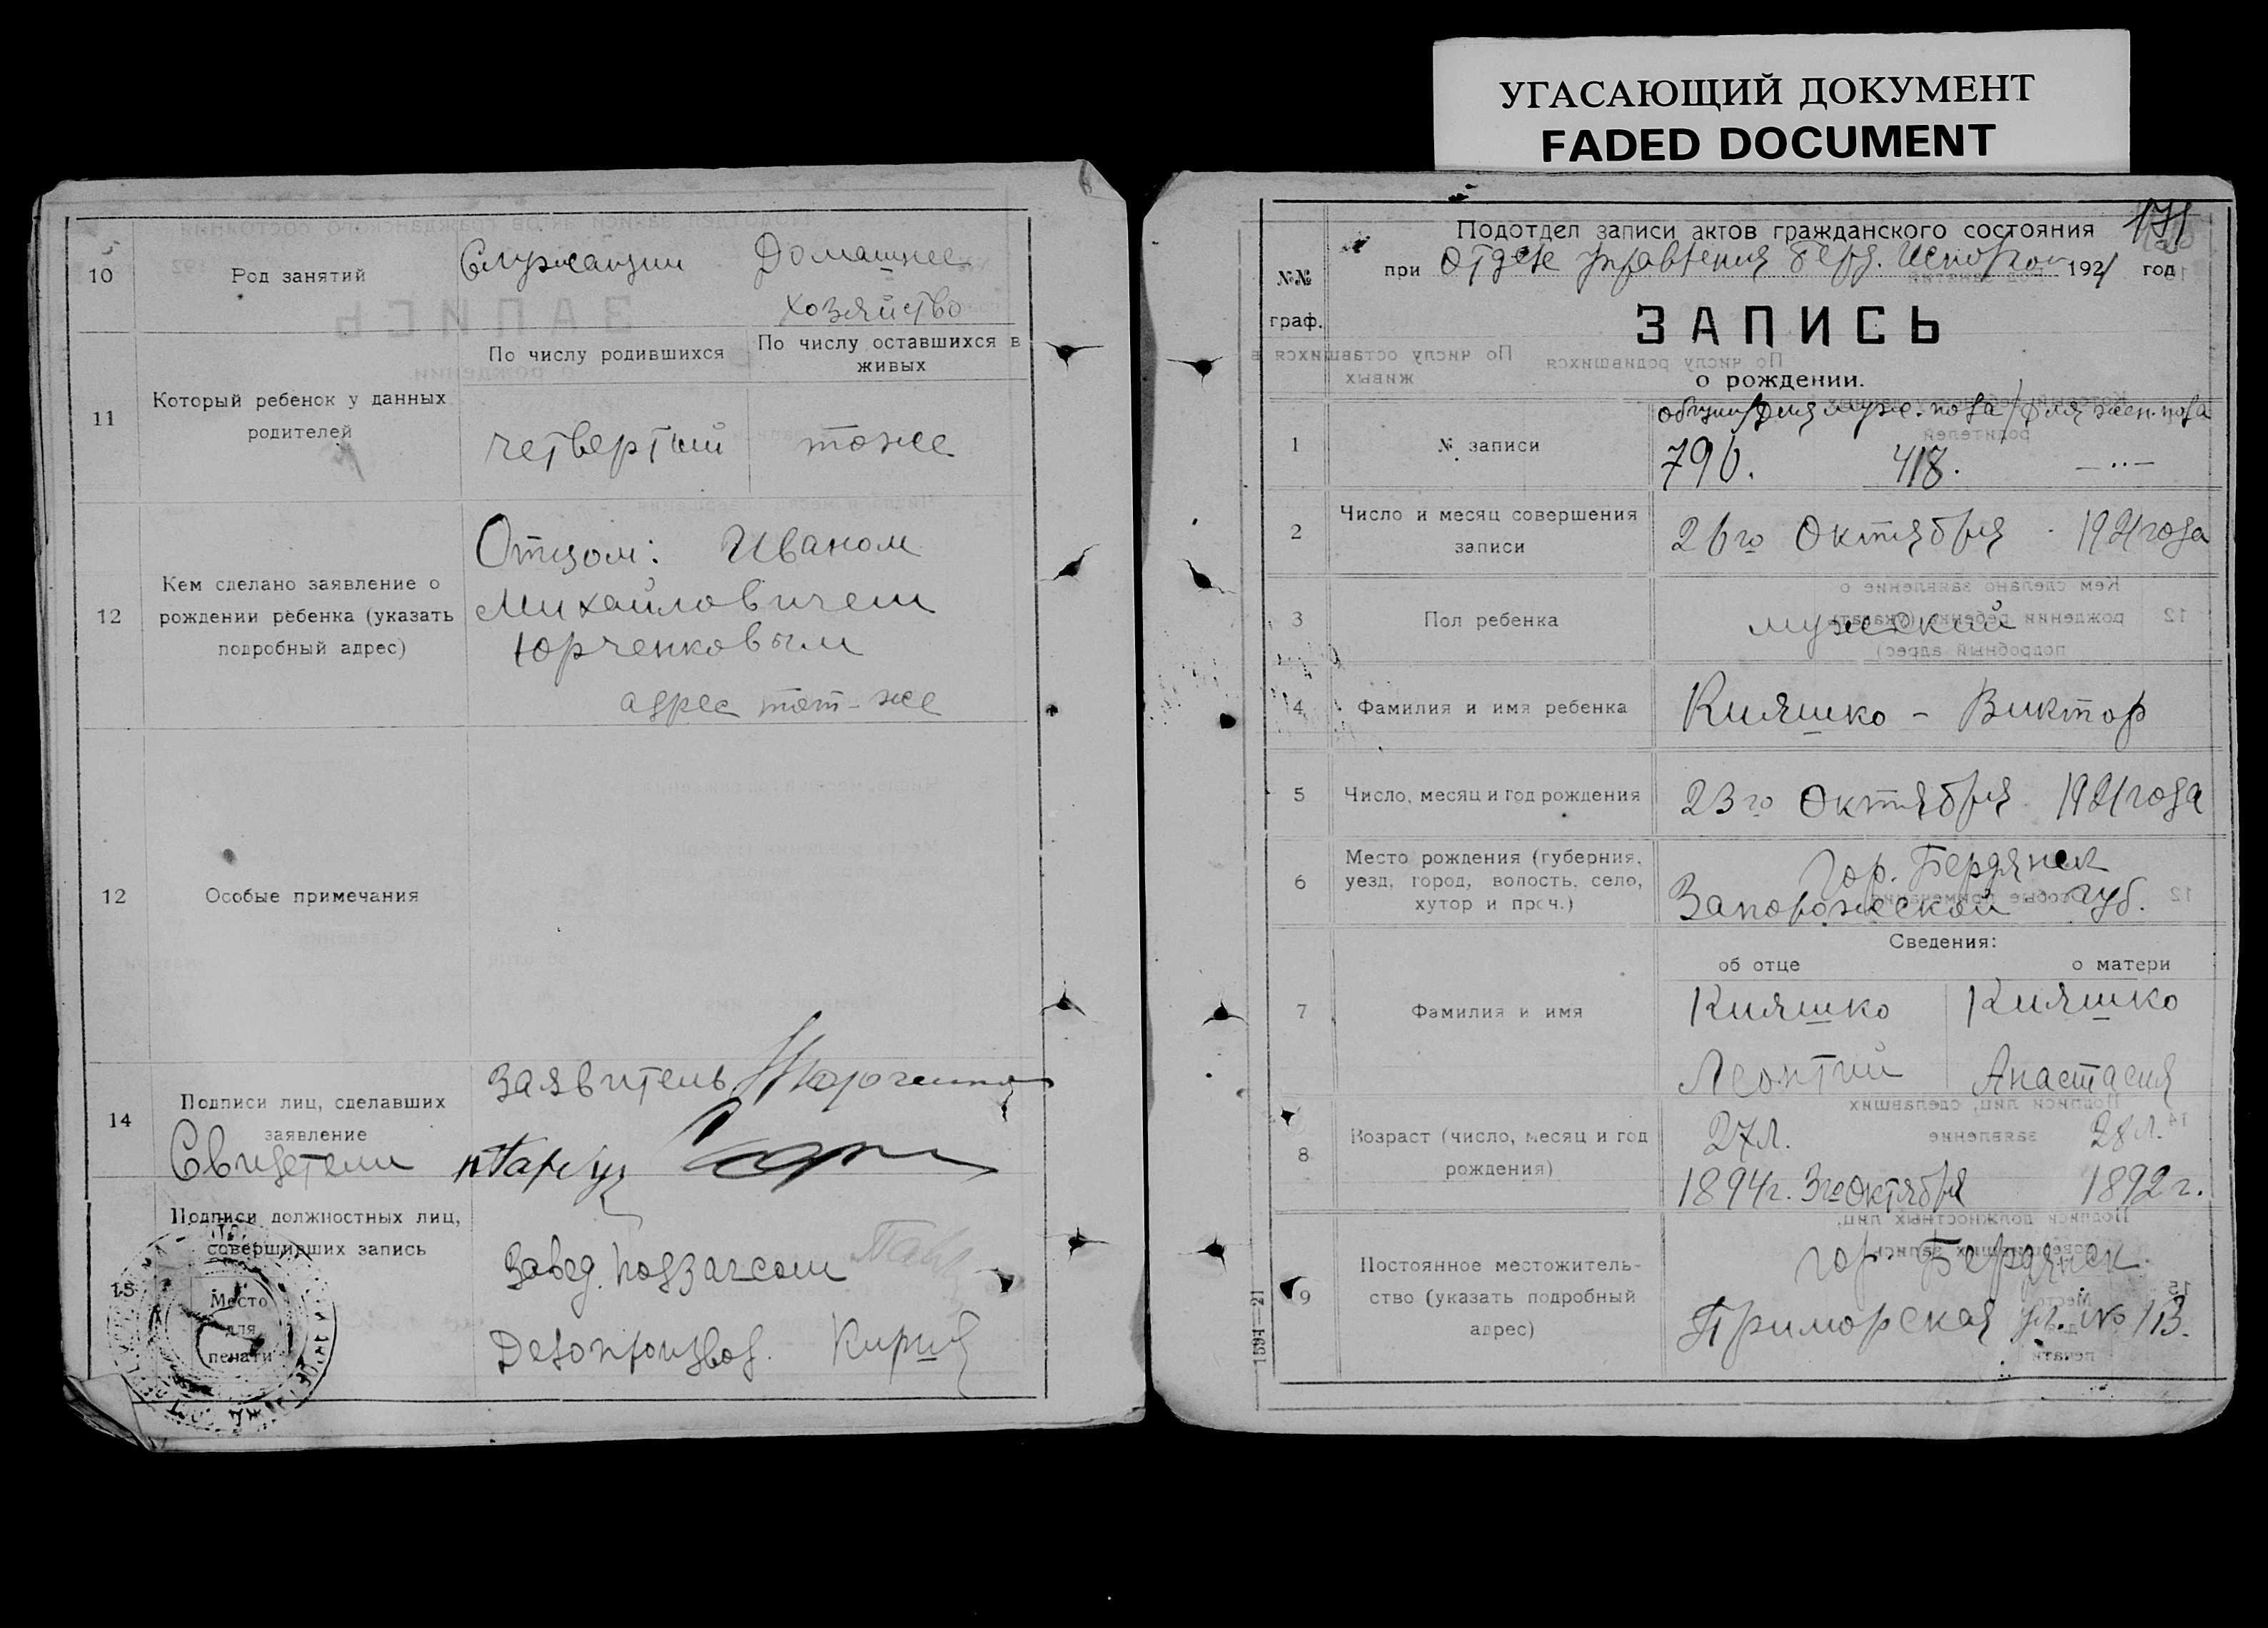 УГАСАЮЩИЙ ДОКУМЕНТ
FADED DOCUMENT
10
Род занятий
Служащий
Домашнее
хозяйство
11
Который ребенок у данных
родителей
По числу родившихся
По числу оставшихся в
живых
четвертый
тоже
12
Кем сделано заявление о
рождении ребенка (указать
подробный адрес)
Отцом: Иваном
Михайловичем
Юрченковым
адрес тот-же
12
Особые примечания
14
Подписи лиц, сделавших
заявление
Свидетели
Заявитель
15
Подписи должностных лиц,
совершивших запись
Место
для
печати
Завед. подзагсом
Делопроизвод.
171
№№
граф.
Подотдел записи актов гражданского состояния
при Отделе управления Берд. Исполком 1921 год
ЗАПИСЬ
о рождении.
1
№ записи
общий/для муж. пола/для жен. пола
790. 418. —··—
2
Число и месяц совершения
записи
26го Октября · 1921 года
3
Пол ребенка
мужской
4
Фамилия и имя ребенка
Кияшко - Виктор
5
Число, месяц и год рождения
23го Октября 1921 года
6
Место рождения (губерния,
уезд, город, волость, село,
хутор и проч.)
Гор. Бердянск
Запорожской губ.
Сведения:
об отце
о матери
7
Фамилия и имя
Кияшко
Леонтий
Кияшко
Анастасия
8
Возраст (число, месяц и год
рождения)
27 л.
1894 г. 3го Октября
28 л.
1892 г.
9
Постоянное местожитель-
ство (указать подробный
адрес)
гор. Бердянск
Приморская ул. № 113.
1594—21